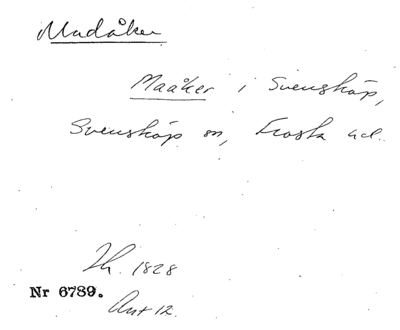 Madåker
Maåker i Svensköp,
Svensköp sn, Frosta hd.
Th. 1828
Nr 6789.
Ant 12.